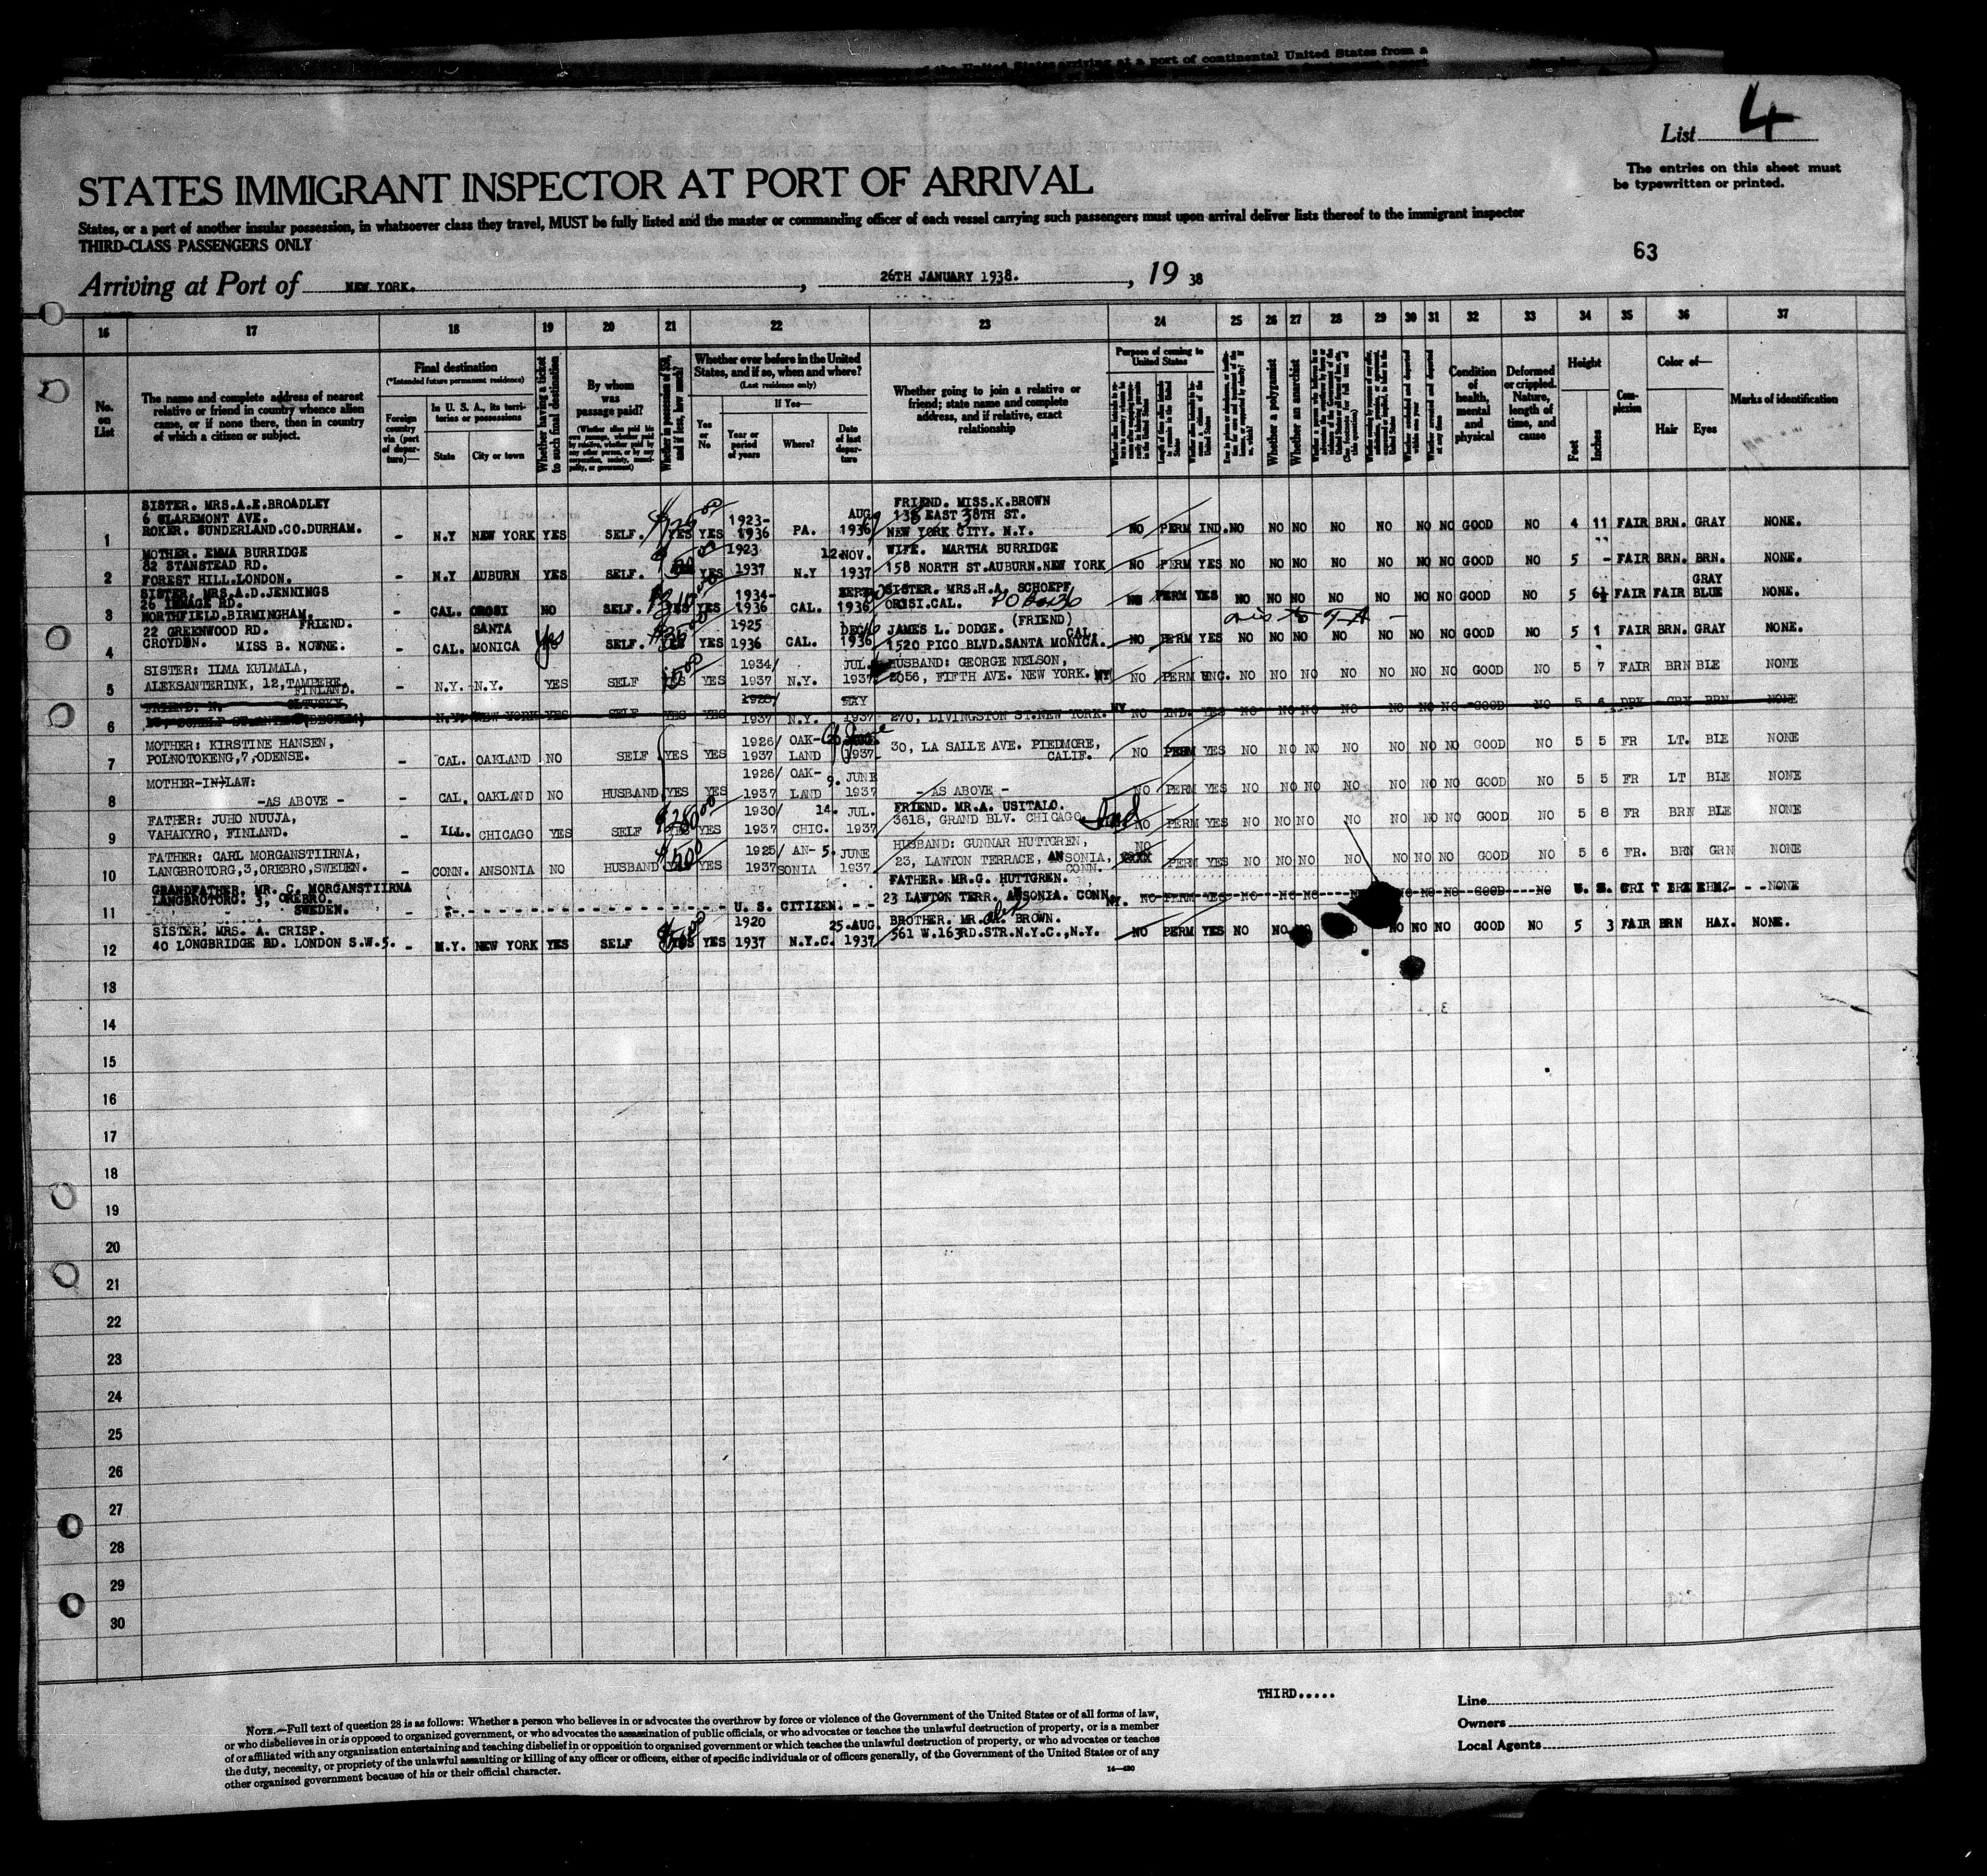 of the United States arriving at a port of continental United States from a
List 4
The entries on this sheet must
be typewritten or printed.
STATES IMMIGRANT INSPECTOR AT PORT OF ARRIVAL
States, or a port of another insular possession, in whatsoever class they travel, MUST be fully listed and the master or commanding officer of each vessel carrying such passengers must upon arrival deliver lists thereof to the immigrant inspector
THIRD-CLASS PASSENGERS ONLY
63
Arriving at Port of NEW YORK. , 26TH JANUARY 1938. , 19 38
16 17 18 19 20 21 22 23 24 25 26 27 28 29 30 31 32 33 34 35 36 37
No. on List
The name and complete address of nearest
relative or friend in country whence alien
came, or if none there, then in country
of which a citizen or subject.
Final destination
(*Intended future permanent residence)
Foreign country via (port of departure)—
In U. S. A., its territories or possessions
State
City or town
Whether having a ticket to such final destination
By whom was passage paid?
Whether in possession of $50, and if less, how much?
Whether ever before in the United
States, and if so, when and where?
(Last residence only)
Yes or No
If Yes—
Year or period of years
Where?
Date of last departure
Whether going to join a relative or
friend; state name and complete
address, and if relative, exact
relationship
Purpose of coming to United States
Whether a polygamist
Whether an anarchist
Condition of health, mental and physical
Deformed or crippled. Nature, length of time, and cause
Height
Feet
Inches
Complexion
Color of—
Hair
Eyes
Marks of identification
SISTER. MRS.A.E.BROADLEY
6 CLAREMONT AVE.
ROKER. SUNDERLAND.CO.DURHAM.
1 - N.Y NEW YORK YES SELF. YES YES 1923-1936 PA. AUG 1936
FRIEND. MISS.K.BROWN
138 EAST 38TH ST.
NEW YORK CITY. N.Y.
NO PERM IND. NO NO NO NO NO NO NO GOOD NO 4 11 FAIR BRN. GRAY NONE.
MOTHER. EMMA BURRIDGE
82 STANSTEAD RD.
FOREST HILL.LONDON.
2 - N.Y AUBURN YES SELF. YES 1923 1937 N.Y 12.NOV. 1937
WIFE. MARTHA BURRIDGE
158 NORTH ST.AUBURN.NEW YORK
NO PERM YES NO NO NO NO NO NO NO GOOD NO 5 - FAIR BRN. BRN. NONE.
SISTER. MRS.A.D.JENNINGS
NORTHFIELD.BIRMINGHAM.
3 - CAL. OROSI NO SELF. YES YES 1934-1936 CAL. 1936
SISTER. MRS.H.A. SCHOEPF
OROSI.CAL. PO Box 36
NO PERM YES NO NO NO NO NO NO NO GOOD NO 5 6½ FAIR FAIR GRAY BLUE NONE.
22 GREENWOOD RD. FRIEND.
CROYDON. MISS B. NOWNE.
4 - CAL. SANTA MONICA Yes SELF. YES YES 1925 1936 CAL. DEC 1936
JAMES L. DODGE. (FRIEND)
1520 PICO BLVD.SANTA MONICA. CAL.
NO PERM YES NO NO NO NO NO NO NO GOOD NO 5 1 FAIR BRN. GRAY NONE.
SISTER: ILMA KULMALA,
ALEKSANTERINK, 12,TAMPERE,
FINLAND.
5 - N.Y. N.Y. YES SELF YES YES 1934/1937 N.Y. JUL. 1937
HUSBAND: GEORGE NELSON,
2056, FIFTH AVE. NEW YORK. NY
NO PERM UNC. NO NO NO NO NO NO NO GOOD NO 5 7 FAIR BRN BLE NONE
6 N.Y. NEW YORK YES SELF YES YES 1928/1937 N.Y. MAY 1937
270, LIVINGSTON ST.NEW YORK. NY
NO IND. YES NO NO NO NO NO NO NO GOOD NO 5 6 DRK GRY BRN NONE
MOTHER: KIRSTINE HANSEN,
POLNOTOKENG,7,ODENSE.
7 - CAL. OAKLAND NO SELF YES YES 1926/1937 OAKLAND 1937
30, LA SALLE AVE. PIEDMORE,
CALIF.
NO PERM YES NO NO NO NO NO NO NO GOOD NO 5 5 FR LT. BLE NONE
MOTHER-IN-LAW:
-AS ABOVE -
8 - CAL. OAKLAND NO HUSBAND YES YES 1926/1937 OAKLAND 9. JUNE 1937
- AS ABOVE -
NO PERM YES NO NO NO NO NO NO NO GOOD NO 5 5 FR LT BLE NONE
FATHER: JUHO NUUJA,
VAHAKYRO, FINLAND.
9 - ILL. CHICAGO YES SELF $280.00 YES YES 1930/1937 CHIC. 14. JUL. 1937
FRIEND. MR.A. USITALO.
3618, GRAND BLV. CHICAGO
NO PERM YES NO NO NO NO NO NO NO GOOD NO 5 8 FR BRN BLE NONE
FATHER: CARL MORGANSTIIRNA,
LANGBROTORG,3,OREBRO,SWEDEN.
10 - CONN. ANSONIA NO HUSBAND YES 1925/1937 ANSONIA 5. JUNE 1937
HUSBAND: GUNNAR HUTTGREN,
23, LAWTON TERRACE, ANSONIA,
CONN.
NO PERM YES NO NO NO NO NO NO NO GOOD NO 5 6 FR. BRN GRN NONE
GRANDFATHER. MR. C. MORGANSTIIRNA
LANGBROTORG. 3, OREBRO.
SWEDEN.
11 U. S. CITIZEN.
FATHER. MR.G. HUTTGREN.
23 LAWTON TERR. ANSONIA. CONN
NO PERM YES NO NO NO NO NO NO GOOD NO NONE
SISTER. MRS. A. CRISP.
40 LONGBRIDGE RD. LONDON S.W.5.
12 - N.Y. NEW YORK YES SELF YES YES 1920 1937 N.Y.C. 25.AUG. 1937
BROTHER. MR. BROWN.
561 W.163RD.STR.N.Y.C.,N.Y.
NO PERM YES NO NO NO NO NO NO NO GOOD NO 5 3 FAIR BRN HAX. NONE.
13
14
15
16
17
18
19
20
21
22
23
24
25
26
27
28
29
30
THIRD.....
Line
Owners
Local Agents
NOTE.—Full text of question 28 is as follows: Whether a person who believes in or advocates the overthrow by force or violence of the Government of the United States or of all forms of law,
or who disbelieves in or is opposed to organized government, or who advocates the assassination of public officials, or who advocates or teaches the unlawful destruction of property, or is a member
of or affiliated with any organization entertaining and teaching disbelief in or opposition to organized government or which teaches the unlawful destruction of property, or who advocates or teaches
the duty, necessity, or propriety of the unlawful assaulting or killing of any officer or officers, either of specific individuals or of officers generally, of the Government of the United States or of any
other organized government because of his or their official character.
14—430